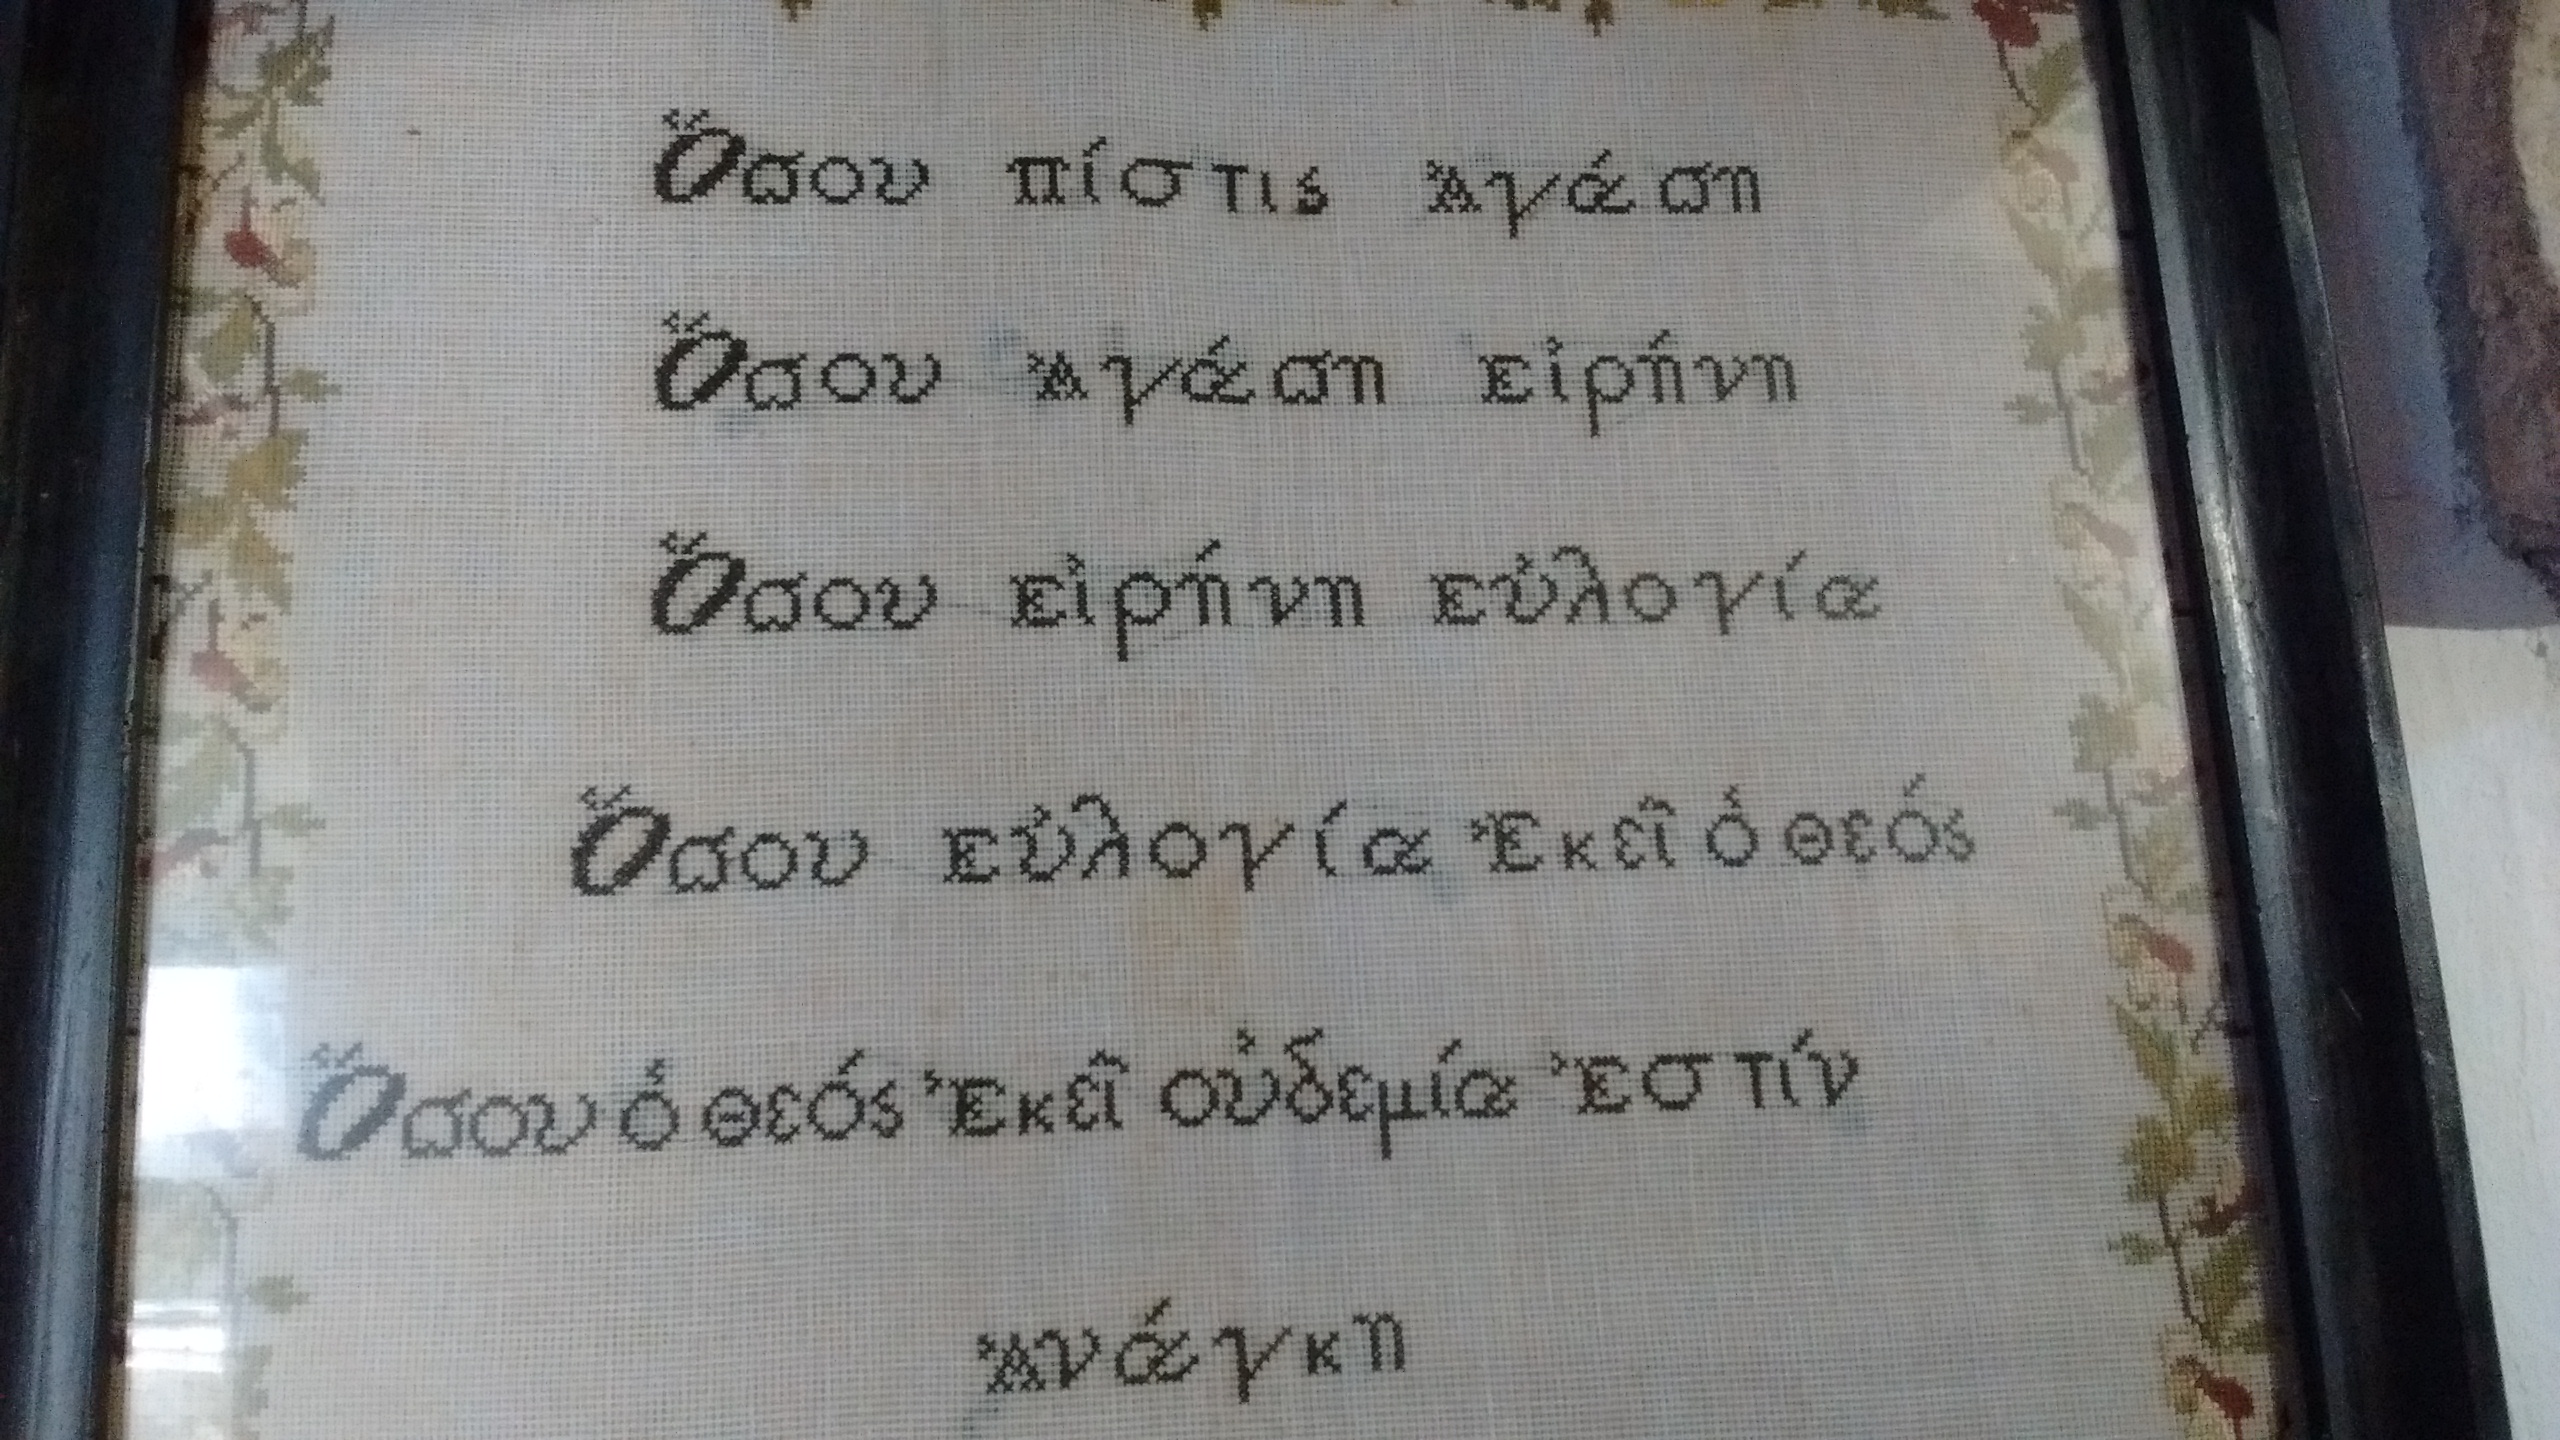 Ὅπου πίστις Ἀγάπη
Ὅπου Ἀγάπη εἰρήνη
Ὅπου εἰρήνη εὐλογία
Ὅπου εὐλογία Ἐκεῖ ὁ θεός
Ὅπου ὁ θεός Ἐκεῖ οὐδεμία Ἐστίν
Ἀνάγκη